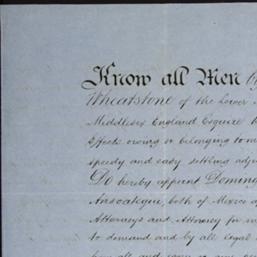 Know all Men by
Wheatstone of the Lower
Middlesex England Esquire
Effects owing or belonging to m
speedy and easy settling adj
Do hereby appoint Doming
Ansoategui, both of Mexico
Attorneys and Attorney for m
to demand and by all legal